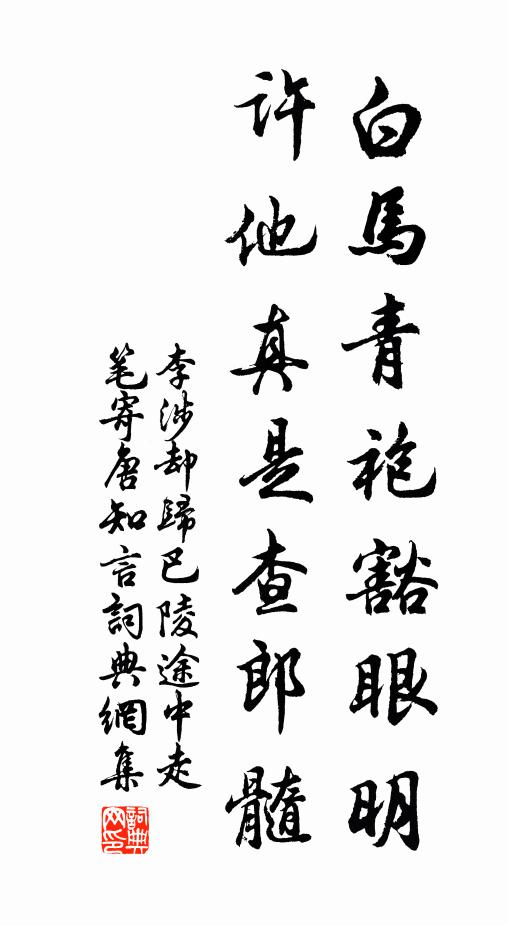 白馬青袍豁眼明
許他真是查郎髓
李涉却歸巴陵途中走
笔寄唐知言詞典網集
詞典網印